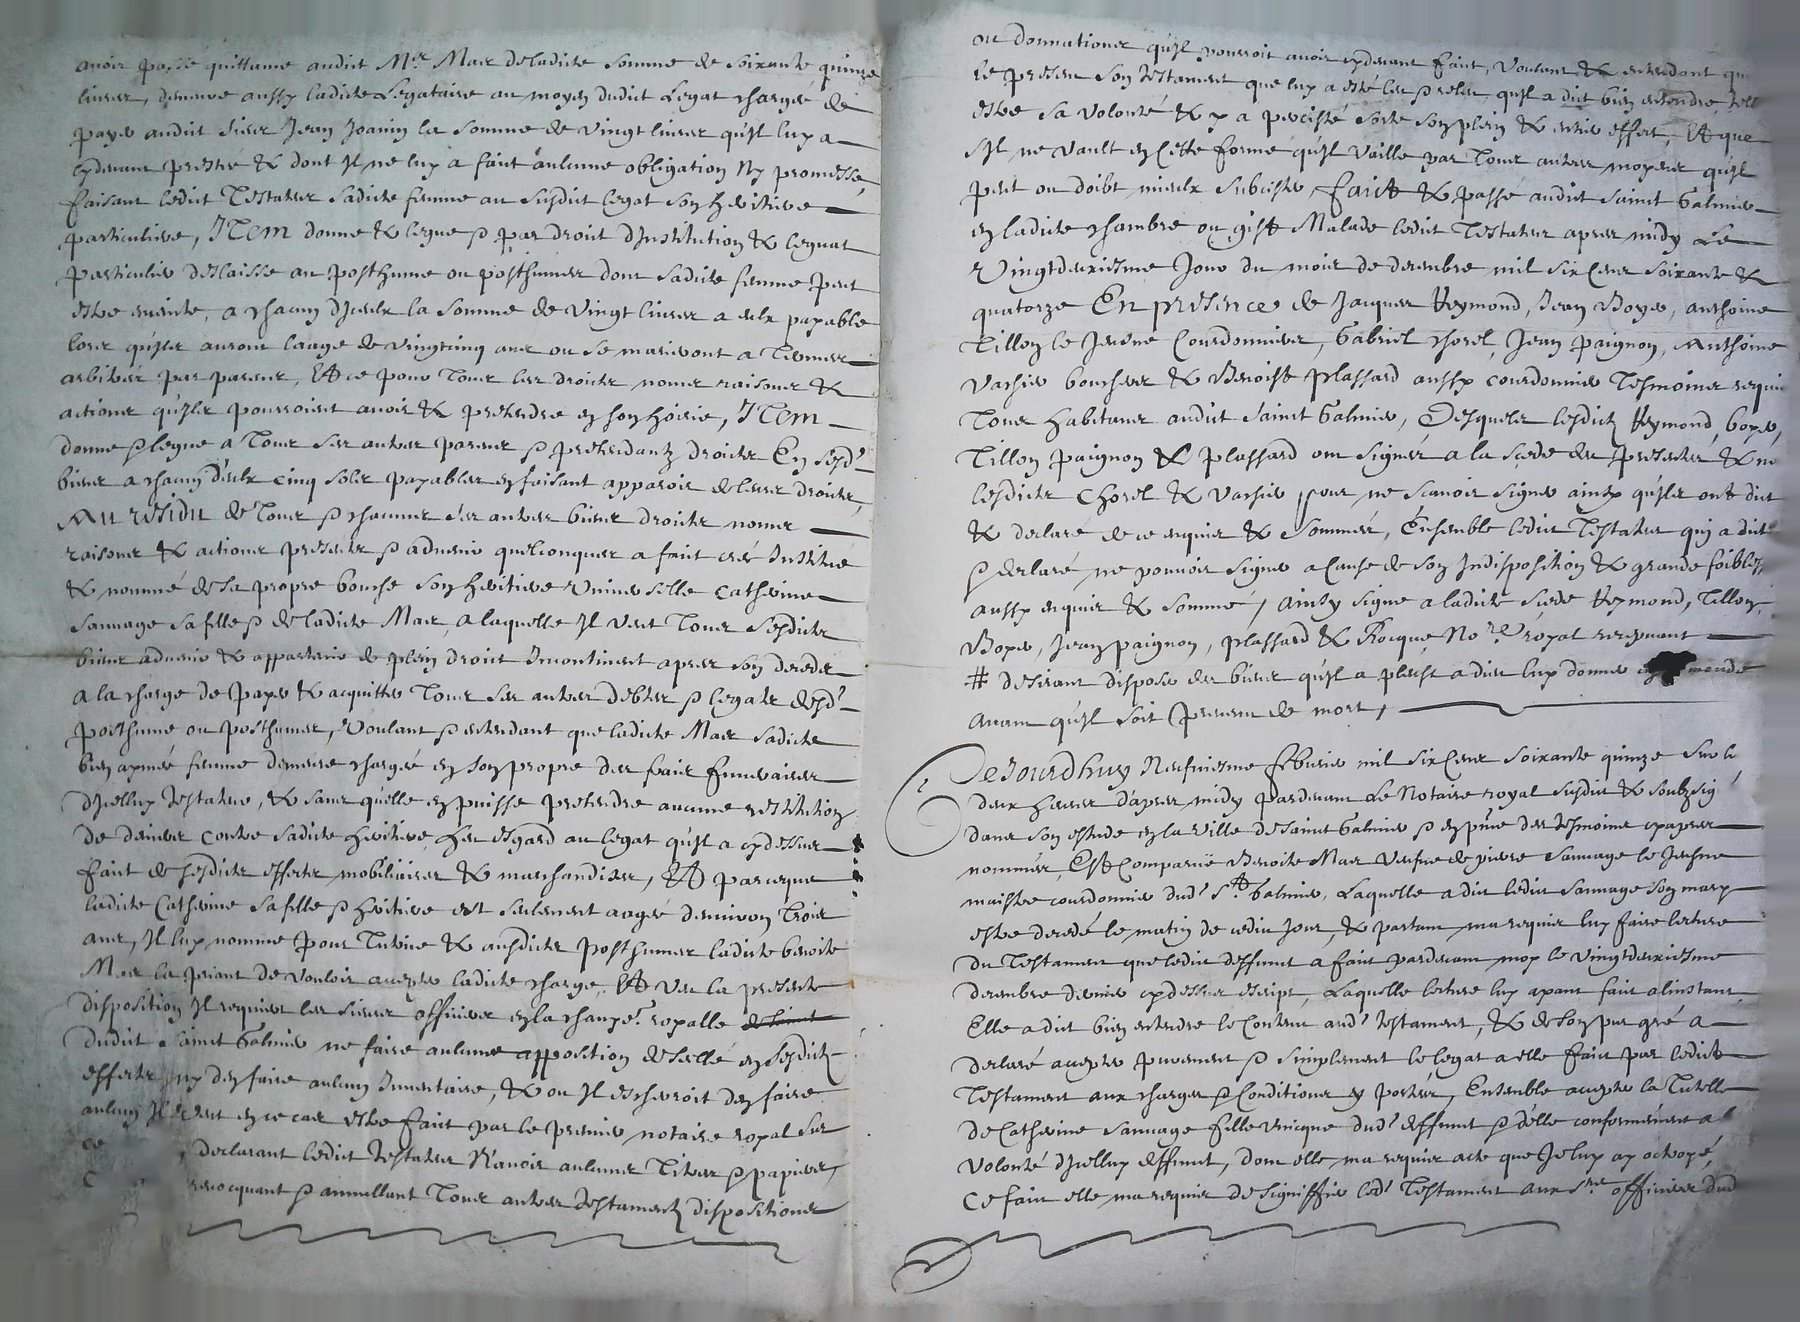 avoir passé quittance audict Mre Maer deladicte somme de soixante quinze
livres, demeure aussy ladicte Legataire au moyen dudict Legat chargée de
payer audict sieur Jean Joanin la somme de vingt livres qu'il luy a
cydevant presté & dont Il ne luy a faict aulcune obligation ny promesse,
faisant ledict Testateur sadicte femme au susdict legat son heritiere
particuliere, ITem donne & legue & par droict d'Institution & leguat
particulier delaisse au posthume ou posthumes dont sadicte femme peut
estre enceinte, a chacun d'Iceulx la somme de vingt livres a eulx payable
lors qu'ils auront laage de vingtcinq ans ou se marieront a Termes
arbitrés par parens, Et ce pour tous les droicts noms raisons &
actions qu'ils pourroient avoir & pretendre en son hoirie, ITem
donne & legue a tous ses autres parens & pretendantz droicts En sesdts
biens a chacun d'eulx cinq solz payables en faisant apparoir de leurs droicts,
Au residu de tous & chacuns ses autres biens droicts noms
raisons & actions presents & advenir quelconques a faict creé Institué
& nommé de sa propre bouche son heritiere universelle Catherine
Sauvage sa fille & de ladicte Maer, a laquelle Il veut tous sesdicts
biens advenir & appartenir de plein droict Incontinent apres son decedz
a la charge de payer & acquitter tous ses autres debtes & legatz desdts
posthume ou posthumes, Voulant & entendant que ladicte Maer sadicte
bien aymée femme demeure chargée en son propre des frais funeraires
d'Icelluy testateur, & sans qu'elle en puisse pretendre aucune restitution
de deniers contre sadicte heritiere, heu esgard au legat qu'il a cydessus
faict de sesdicts effects mobiliaires & marchandises, Et parceque
ladicte Catherine sa fille & heritiere est seulement aagée d'environ trois
ans, Il luy nomme pour Tutrice & ausdicts posthumes ladicte benoite
Maer la priant de vouloir accepter ladicte charge, Et veu la presente
disposition Il requiert les sieurs officiers en la royalle
dudict Sainct Galmier ne faire aulcune apposition de scellé en sesdictz
effects ny d'en faire aulcun Inventaire, & ou Il escherroit d'en faire
aulcun Il veut en ce cas estre faict par le premier notaire royal sur
ce declarant ledict testateur n'avoir aulcuns Titres & papiers,
revocquant & annullant tous autres testamentz dispositions
ou donnations qu'il pourroit avoir cydevant faict, voulant & entendant que
le present son testament que luy a esté leu & releu, qu'il a dict bien entendre
estre sa volonté & y a percisté sorte son plein & entier effect, Et que
s'Il ne vault en cette forme qu'il vaille par tous autres moyens qu'il
peut ou doibt mieulx subcister, faict & passé audict Sainct Galmier
en ladicte chambre ou gist Malade ledict Testateur apres midy Le
Vingtdeuxiesme Jour du mois de decembre mil six Cens soixante &
quatorze En presence de Jacques Reymond, Jean Boyer, anthoine
Tillon le Jeusne Courdonniers, Gabriel Chorel, Jean paignon, Anthoine
Vachier bouchers & Benoist Plassard aussy courdonnier Tesmoins requis
Tous habitans audict Sainct Galmier, Desquels lesdictz Reymond, boyer,
Tillon paignon & plassard ont signés a la scede des presentes & non
lesdicts Chorel & Vachier pour ne scavoir signer ainsy qu'ils ont dict
& declaré de ce enquis & sommés, Ensemble ledict Testateur qui a dict
& declaré ne pouvoir signer a Cause de son Indisposition & grande foiblesse
aussy enquis & sommé, ainsy signé a ladicte scede Reymond, Tillon,
Boyer, Jean paignon, Plassard & Rocque, Nore royal recepvant
# desirant disposer des biens qu'il a pleust a dieu luy donner monde
avant qu'il soit prevenu de mort,
Cejourdhuy Neufviesme febvrier mil six Cens soixante quinze sur les
deux heures d'apres midy pardevant Le Notaire royal susdict & soubzsig
dans son estude en la ville de Sainct Galmier & en pnce des tesmoins cyapres
nommés, Est Comparuë Benoite Maer veufve de pierre Sauvage le Jeusne
maistre courdonnier dudt St Galmier, Laquelle a dict ledict Sauvage son mary
estre decedé le matin de cedict Jour, & partant ma requis luy faire lecture
du Testament que ledict deffunct a faict pardevant moy le vingtdeuxiesme
decembre dernier cydessus escript, Laquelle lecture luy ayant faict a linstant
Elle a dict bien entendre le contenu audt testament, & de son pur gré a
declaré accepter purement & simplement le legat a elle faict par ledict
Testament aux charges & Conditions y portées, Ensemble accepter la Tutelle
de Catherine Sauvage fille unicque dudt deffunct & d'elle conformement a la
volonté d'Icelluy deffunct, dont elle ma requis acte que Je luy ay octroyé,
Ce faict elle ma requis de signiffier ledt Testament aux Srs officiers dud